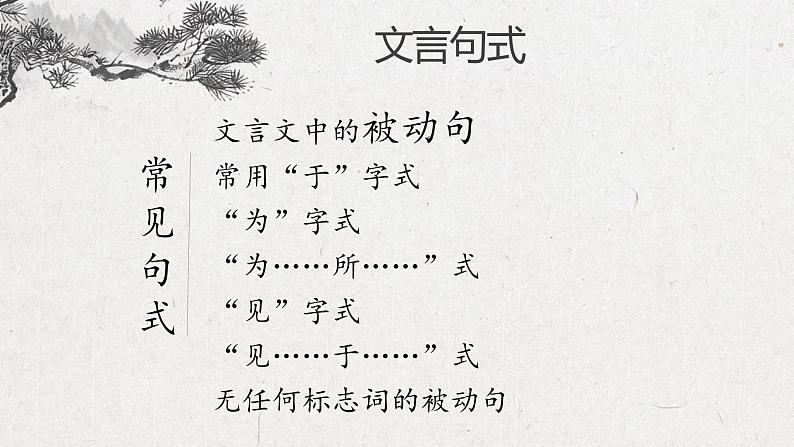 文言句式
常见句式
文言文中的被动句
常用“于”字式
“为”字式
“为……所……”式
“见”字式
“见……于……”式
无任何标志词的被动句